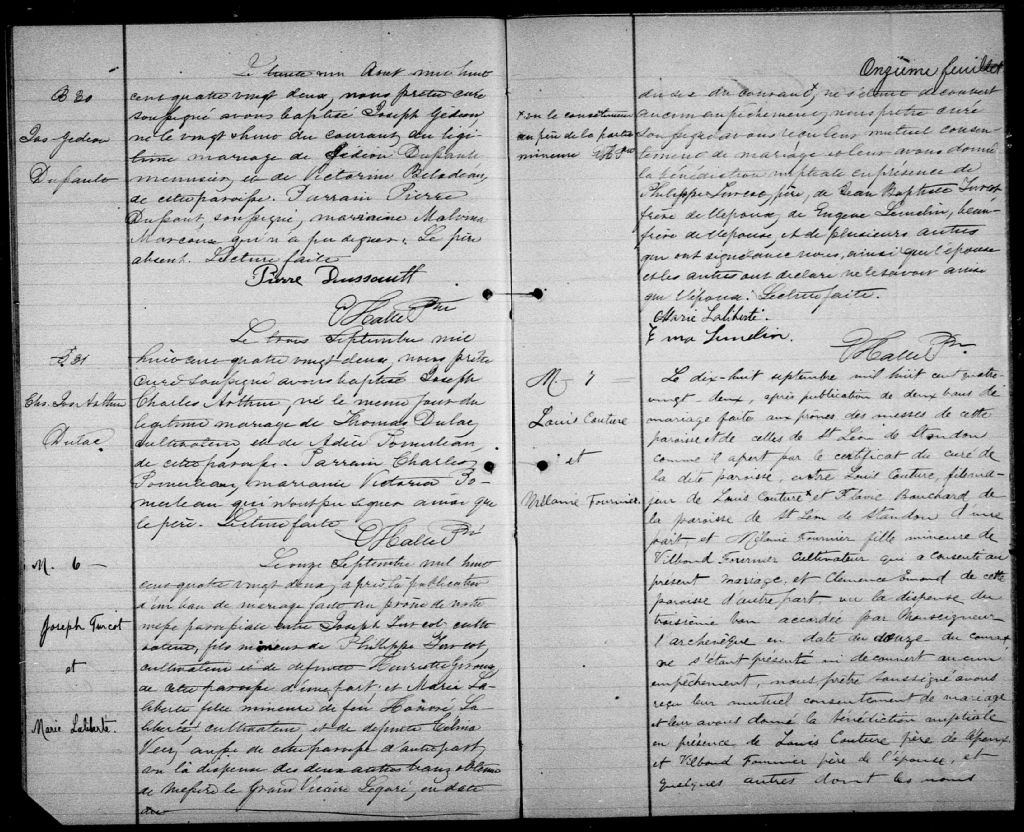 B 30
Jos Gedeon
Dussault
Le trente un Aout mil huit
cent quatre vingt deux, nous prêtre curé
soussigné avons baptisé Joseph Gedeon
né le vingt du courant, du légi
time mariage de Gédéon Dussault
menuisier, et de Victorine Bilodeau,
de cette paroisse. Parrain Pierre
Dussault, soussigné, marraine Malvina
Marcoux qui n'a pu signer. Le père
absent. Lecture faite
Pierre Dussault
Hallé Ptre
B 31
Chs. Jos Arthur
Dulac
Le trois Septembre mil
huit cent quatre vingt deux, nous prêtre
curé soussigné avons baptisé Joseph
Charles Arthur, né le même jour du
légitime mariage de Thomas Dulac,
cultivateur et de Adèle Pomerleau,
de cette paroisse. Parrain Charles
Pomerleau, marraine Victoria Po-
merleau qui n'ont pu signer ainsi que
le père. Lecture faite
Hallé Ptre
M. 6
Joseph Turcot
et
Marie Laliberté.
Le onze Septembre mil huit
cent quatre vingt deux, après la publication
d'un ban de mariage faite au prône de notre
messe paroissiale entre Joseph Turcot culti
vateur, fils mineur de Philippe Turcot,
cultivateur et de defunte Henriette Giroux
de cette paroisse d'une part; et Marie La-
liberté fille mineure de feu Honoré La-
liberté cultivateur, et de defunte
aussi de cette paroisse d'autre part,
vu la dispense des deux autres bans obtenue
de Messire le Grand Vicaire Légaré, en date
du
Onzième feuillet
x vu le consentement
du père de la partie
mineure Ptre
du six du courantx, ne s'étant découvert
aucun empêchement, nous prêtre curé
soussigné avons reçu leur mutuel consen-
tement de mariage et leur avons donné
la bénédiction nuptiale en présence de
Philippe Turcot, père, de Jean Baptiste Turcot
frère de l'époux, de Eugene Lemelin, beau-
frère de l'épouse, et de plusieurs autres
qui ont signé avec nous, ainsi que l'épouse
et les autres ont déclaré ne le savoir ainsi
que l'époux. Lecture faite.
Marie Laliberté.
Lemelin.
Hallé Ptre
M. 7
Louis Couture
et
Mélanie Fournier.
Le dix-huit septembre mil huit cent quatre-
vingt deux, après publication de deux bans de
mariage faite aux prônes des messes de cette
paroisse et de celles de St Léon de Standon
comme il apert par le certificat du curé de
la dite paroisse, entre Louis Couture, fils ma-
jeur de Louis Couturex et Flavie Bouchard de
la paroisse de St Léon de Standon d'une
part et Mélanie Fournier fille mineure de
Vilbond Fournier Cultivateur qui a consenti au
présent mariage, et Clemence Emond de cette
paroisse d'autre part, vu la dispense du
troisième ban accordée par Monseigneur
l'archevêque en date du douze du courant
ne s'étant présenté ni découvert aucun
empêchement, nous prêtre soussigné avons
reçu leur mutuel consentement de mariage
et leur avons donné la bénédiction nuptiale
en présence de Louis Couture père de l'époux,
et Vilbond Fournier père de l'épouse, et
quelques autres dont les noms